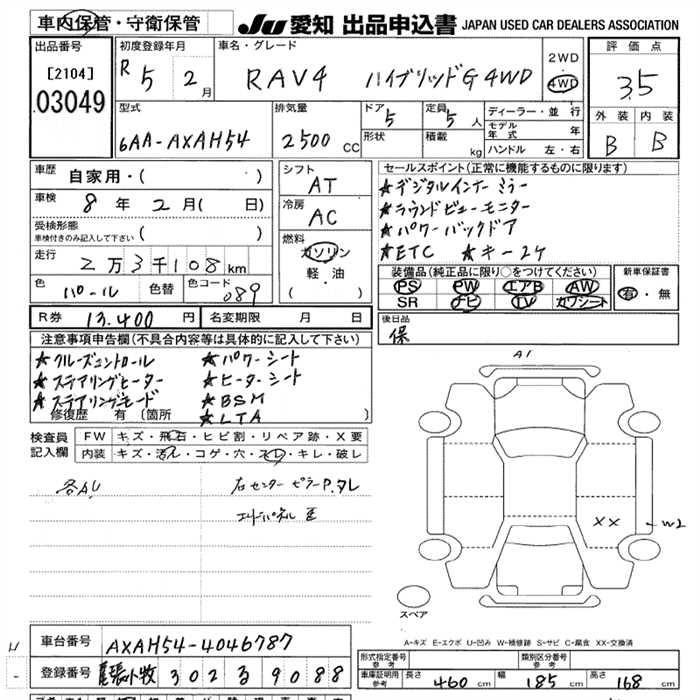 車内保管・守衛保管
JU 愛知 出品申込書 JAPAN USED CAR DEALERS ASSOCIATION
出品番号
[2104]
03049
初度登録年月
R 5 2月
車名・グレード
RAV4 ハイブリッドG 4WD
2WD
4WD
評価点
3.5
外装 内装
B B
型式
6AA-AXAH54
排気量
2500 CC
ドア 5
形状
定員 5人
積載 kg
ディーラー・並行
モデル年式 年
ハンドル 左・右
車歴 自家用・( )
車検 8年 2月( 日)
受検形態
車検付きのみ記入して下さい ( )
走行 2万3千108km
色 パール 色替 色コード 089
シフト
AT
冷房
AC
燃料
ガソリン
軽・油
( )
セールスポイント(正常に機能するものに限ります)
★デジタルインナーミラー
★ラウンドビューモニター
★パワーバックドア
★ETC ★キー2ケ
装備品(純正品に限り○をつけてください)
PS PW エアB AW
SR ナビ TV カワシート
新車保証書
有・無
R券 13.400円 名変期限 月 日
後日品
保
注意事項申告欄(不具合内容等は具体的に記入して下さい)
★クルーズコントロール ★パワーシート
★ステアリングヒーター ★ヒーターシート
★ステアリングモード ★BSM
修復歴 有〔箇所 ★LTA 〕
検査員記入欄
FW キズ・飛石・ヒビ割・リペア跡・X要
内装 キズ・汚レ・コゲ・穴・スレ・キレ・破レ
各AU 右センターピラーP.タレ
A1
XX
W2
スペア
A-キズ E-エクボ U-凹み W-補修跡 S-サビ C-腐食 XX-交換済
車台番号 AXAH54-4046787
登録番号 尾張小牧 302 る 9088
形式指定番号
参考
類別区分番号
参考
車庫証明用
参考
長さ 460cm 幅 185cm 高さ 168cm